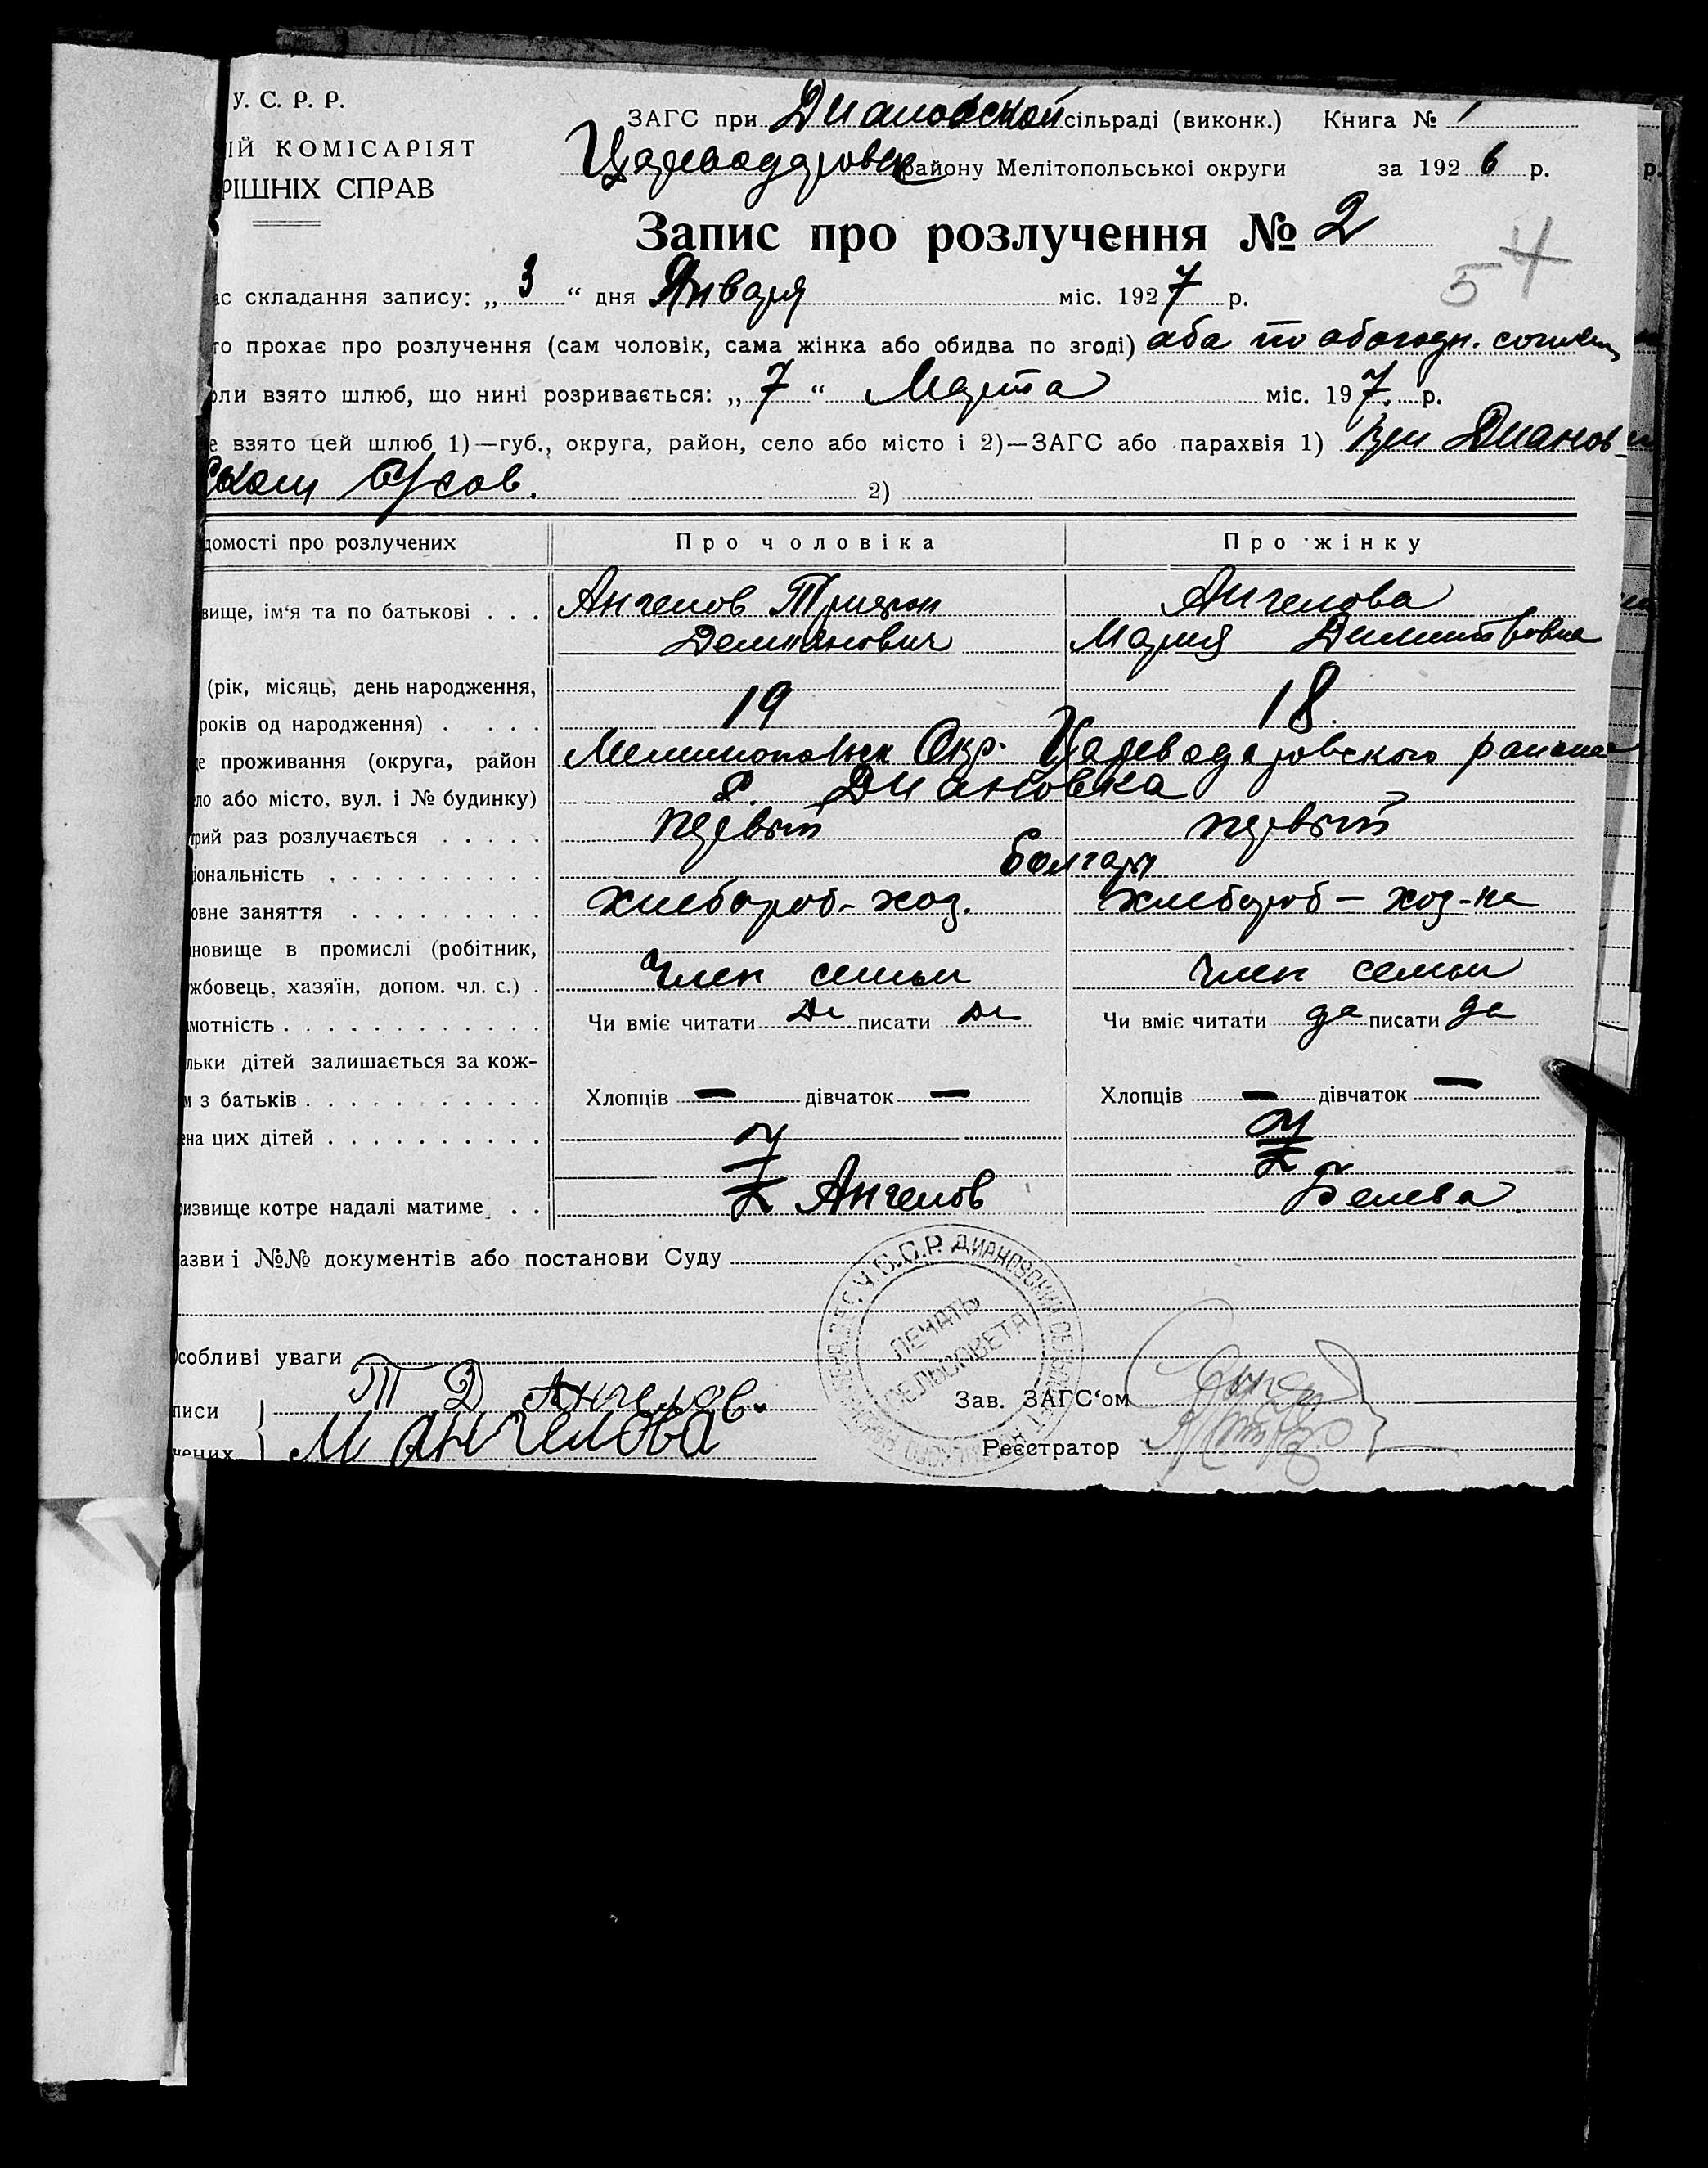 У. С. Р. Р.
ЗАГС при Диановской сільраді (виконк.) Книга № 1
ІЙ КОМІСАРІЯТ
Цареводаровск району Мелітопольської округи за 1926 р.
РІШНІХ СПРАВ
Запис про розлучення № 2
54
ас складання запису: „ 3 “ дня Января міс. 1927 р.
то прохає про розлучення (сам чоловік, сама жінка або обидва по згоді) оба по
оли взято шлюб, що нині розривається: „ 7 “ Марта міс. 197 р.
е взято цей шлюб 1)—губ., округа, район, село або місто і 2)—ЗАГС або парахвія 1) При Дианов
ском с/сов. 2)
домості про розлучених Про чоловіка Про жінку
вище, ім‘я та по батькові . . . Ангелов Трифон Ангелова
Демианович Мария Димитровна
(рік, місяць, день народження,
років од народження) . . . . 19 18
е проживання (округа, район Мелитопольск Окр. Цареводаровского района
ло або місто, вул. і № будинку) с. Диановка
рий раз розлучається . . . . . первый первый
іональність . . . . . . . . . . Болгары
овне заняття . . . . . . . . . хлебороб-хоз. хлебороб – хоз-ка
ановище в промислі (робітник,
жбовець, хазяїн, допом. чл. с.) . Член семьи Член семьи
мотність . . . . . . . . . . . . Чи вміє читати Да писати Да Чи вміє читати да писати да
льки дітей залишається за кож-
м з батьків . . . . . . . . . . . Хлопців — дівчаток — Хлопців — дівчаток —
ена цих дітей . . . . . . . . . .
ризвище котре надалі матиме . . Ангелов Белева
азви і №№ документів або постанови Суду
У.С.С.Р. ДИАНОВСКИЙ
ПЕЧАТЬ
СЕЛЬСОВЕТА
собливі уваги
писи Т Д Ангелов. Зав. ЗАГС‘ом
чених М Ангелова Реєстратор